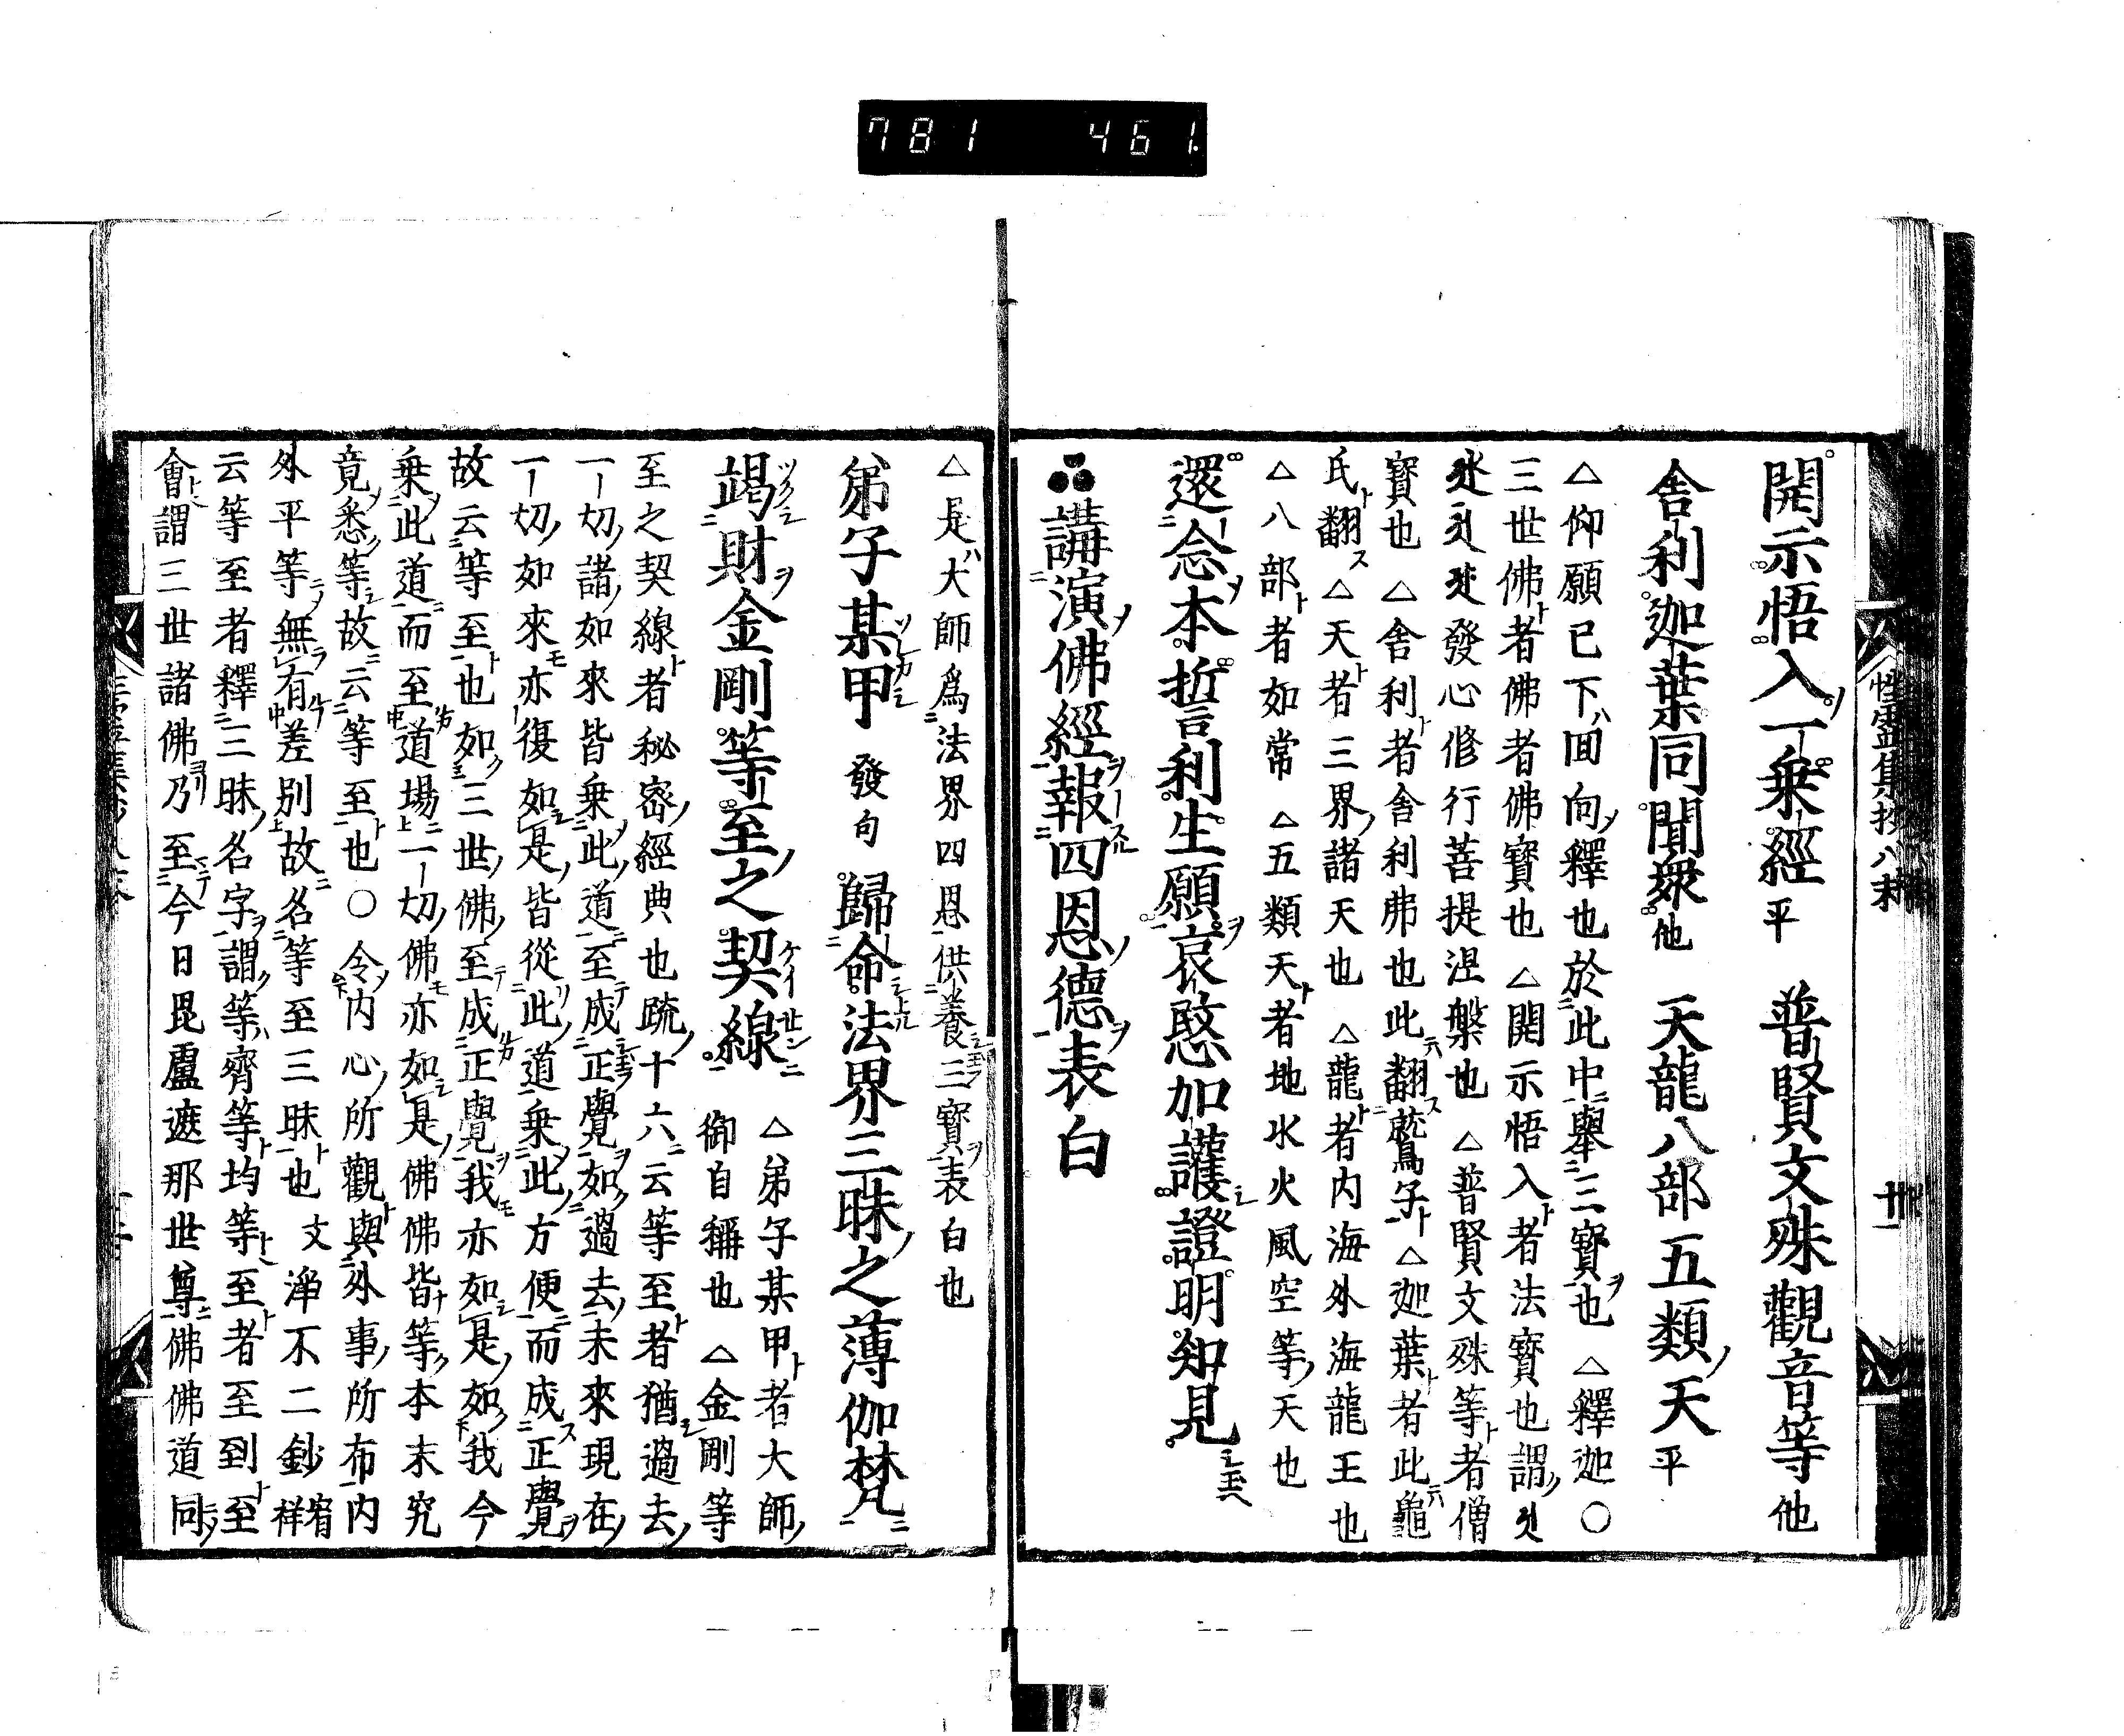 781 461.
性霊集抄八末 廿一
開示悟入一乗經平 普賢文殊觀音等他
舎利迦葉同聞衆他 天龍八部五類ノ天平
△仰願已下ハ回向ノ釋也於此中擧三寶ヲ也 △釋迦○
三世佛ト者佛者佛寶也 △開示悟入ト者法寶也謂ノ
發心修行菩提涅槃也 △普賢文殊等ト者僧
寶也 △舎利ト者舎利弗也此翻ス鷲子ト △迦葉ト者此龜
氏ト翻ス △天ト者三界ノ諸天也 △龍ト者内海外海龍王也
△八部ト者如常 △五類天ト者地水火風空等ノ天也
還念本誓利生願ヲ哀愍加護證明知見
講演佛經ヲ報四恩ノ德ヲ表白
△是ハ大師爲法界四恩供養三寶ヲ表白也
弟子某甲 發句 歸命法界三昧ノ之薄伽梵
竭財ヲ金剛等至ノ之契線 △弟子某甲ト者大師ノ
御自稱也 △金剛等
至之契線ト者秘密ノ經典也疏ノ十六云等至ト者猶過去ノ
一切ノ諸ノ如來皆乗此ノ道至テ成正覺ヲ如ク過去ノ未來現在ノ
一切ノ如來モ亦復如是ノ皆從此ノ道乗此ノ方便而成ス正覺ヲ
故云等至ト也如ク三世ノ佛ノ至テ成正覺ヲ我モ亦如是ノ如ク我今
乗此ノ道而至道場一切ノ佛モ亦如是ノ佛佛皆等ク本末究
竟ノ悉ク等故云等至ト也○令内心ノ所觀ト與外事ノ所布内
外平等無有差別故名等至三昧ト也文 渖不二鈔宥祥
云等至者釋三昧ノ名字ヲ謂ク等ハ齊等ト均等ト至ト者至到ト至
會ト謂三世諸佛乃至今日毘盧遮那世尊佛佛道同